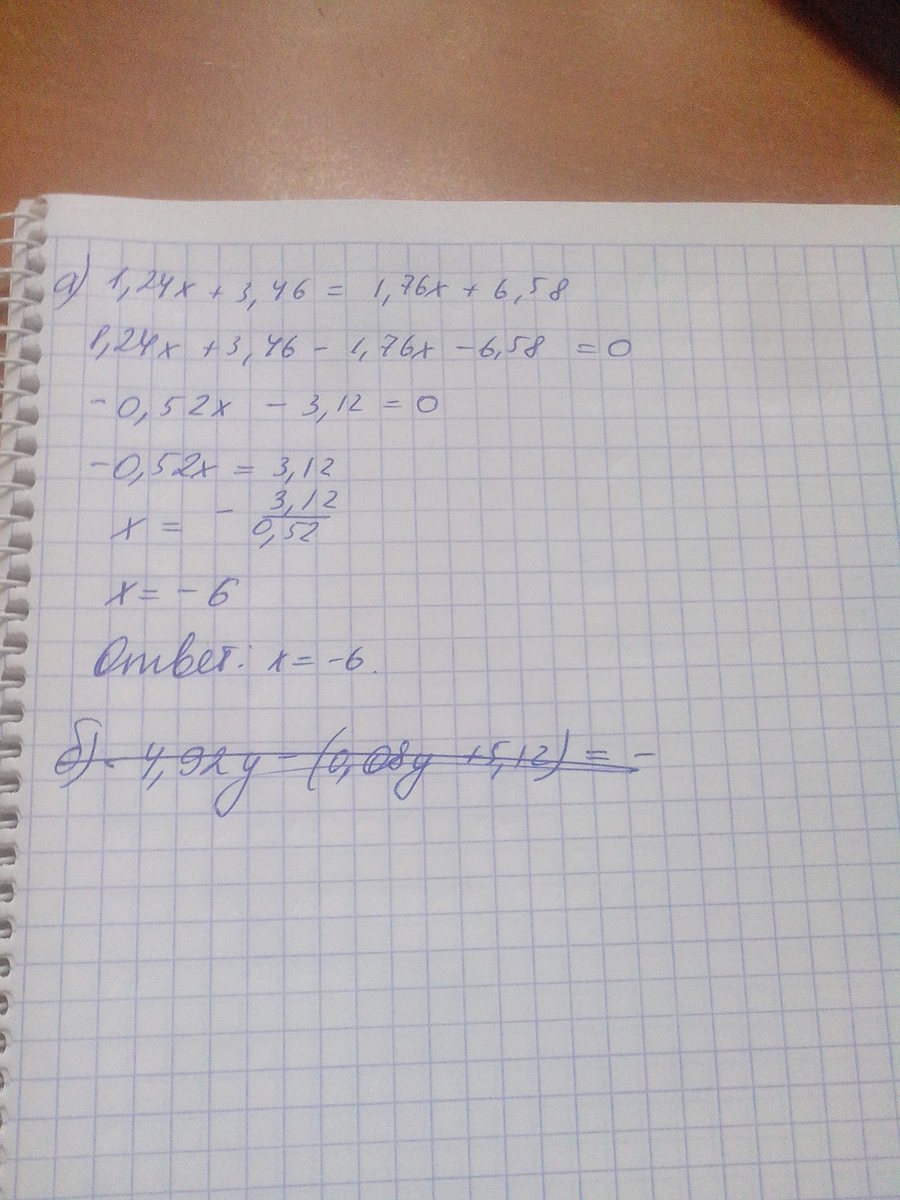 а) 1,24x + 3,46 = 1,76x + 6,58
1,24x + 3,46 - 1,76x - 6,58 = 0
-0,52x - 3,12 = 0
-0,52x = 3,12
x = - 3,12/0,52
x = -6
Ответ: x = -6.
б) 4,92y - (0,08y + 5,12) = -